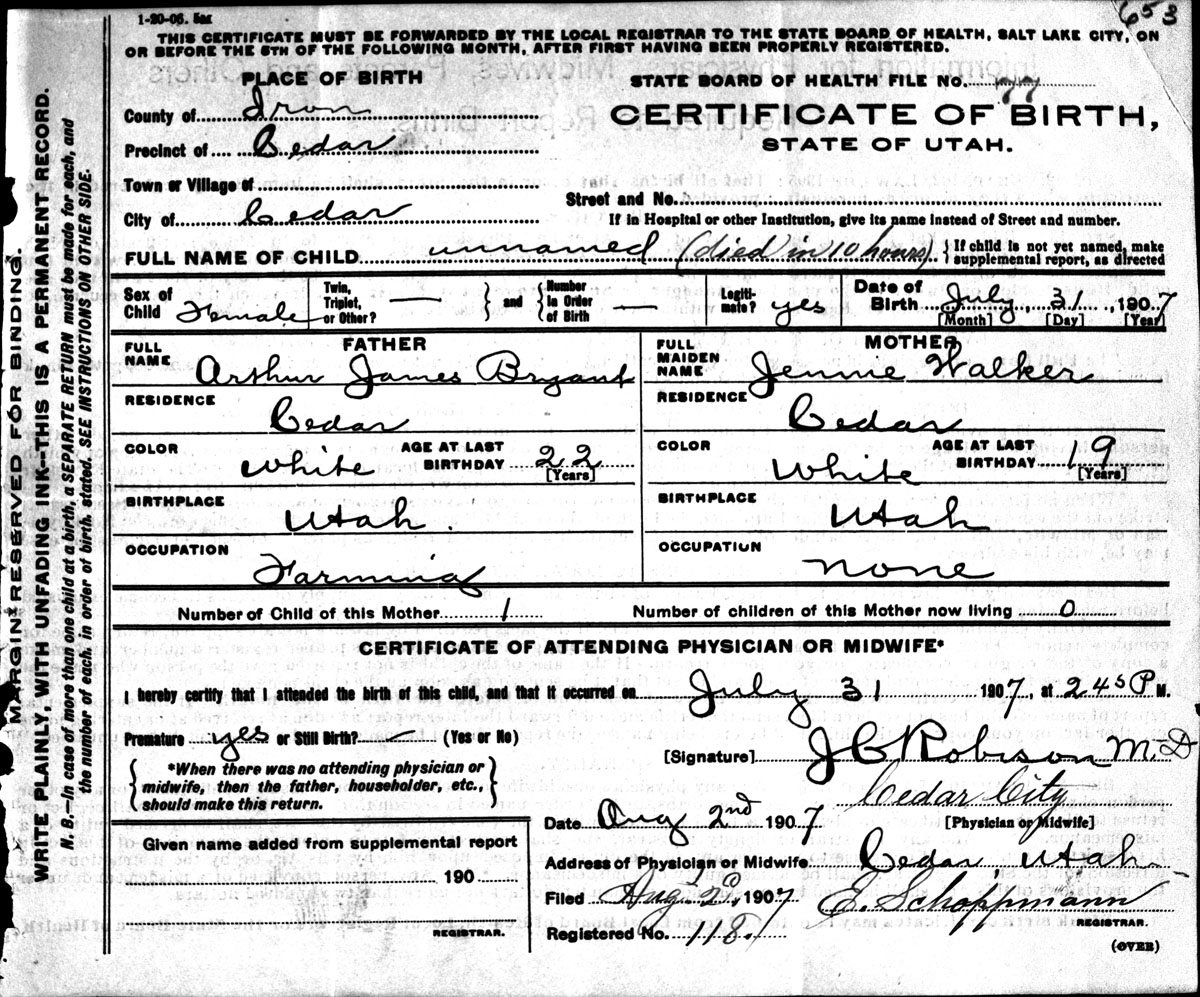 653
1-20-06. 5M
THIS CERTIFICATE MUST BE FORWARDED BY THE LOCAL REGISTRAR TO THE STATE BOARD OF HEALTH, SALT LAKE CITY, ON
OR BEFORE THE 5TH OF THE FOLLOWING MONTH, AFTER FIRST HAVING BEEN PROPERLY REGISTERED.
PLACE OF BIRTH
STATE BOARD OF HEALTH FILE NO. 77
County of Iron
CERTIFICATE OF BIRTH,
Precinct of Cedar
STATE OF UTAH.
Town or Village of
Street and No.
City of Cedar
If in Hospital or other Institution, give its name instead of Street and number.
FULL NAME OF CHILD unnamed (died in 10 hours) { If child is not yet named, make supplemental report, as directed
Sex of Child Female Twin, Triplet, or Other? — } and { Number in Order of Birth — Legitimate? yes Date of Birth July 31, 1907
[Month] [Day] [Year]
FATHER
FULL NAME Arthur James Bryant
RESIDENCE Cedar
COLOR White AGE AT LAST BIRTHDAY 22
[Years]
BIRTHPLACE Utah.
OCCUPATION Farming
MOTHER
FULL MAIDEN NAME Jennie Walker
RESIDENCE Cedar
COLOR White AGE AT LAST BIRTHDAY 19
[Years]
BIRTHPLACE Utah
OCCUPATION none
Number of Child of this Mother 1 Number of children of this Mother now living 0
CERTIFICATE OF ATTENDING PHYSICIAN OR MIDWIFE*
I hereby certify that I attended the birth of this child, and that it occurred on July 31 1907, at 245 P M.
Premature yes or Still Birth? — (Yes or No)
[Signature] J C Robison M.D
{ *When there was no attending physician or midwife, then the father, householder, etc., should make this return. }
Cedar City
Date Aug 2nd 1907 [Physician or Midwife]
Given name added from supplemental report
190
REGISTRAR.
Address of Physician or Midwife Cedar Utah
Filed Aug. 2d, 1907 E. Schoppmann
REGISTRAR.
Registered No. 118.
(OVER)
MARGIN RESERVED FOR BINDING.
WRITE PLAINLY, WITH UNFADING INK—THIS IS A PERMANENT RECORD.
N. B.—In case of more than one child at a birth, a SEPARATE RETURN must be made for each, and
the number of each, in order of birth, stated. SEE INSTRUCTIONS ON OTHER SIDE.